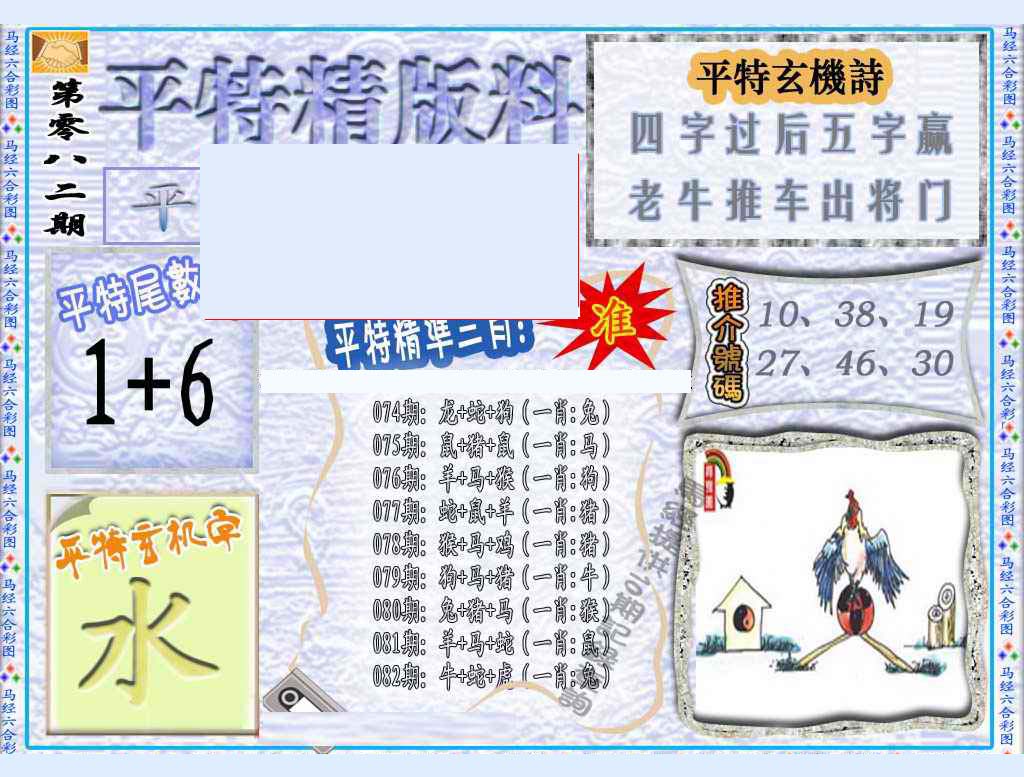 第零八二期
平特精版料
平
平特玄機詩
四字过后五字赢
老牛推车出将门
平特尾數
1+6
平特精準三肖!
准
推介號碼
10、38、19
27、46、30
074期: 龙+蛇+狗(一肖:兔)
075期: 鼠+猪+鼠(一肖:马)
076期: 羊+马+猴(一肖:狗)
077期: 蛇+鼠+羊(一肖:猪)
078期: 猴+马+鸡(一肖:猪)
079期: 狗+马+猪(一肖:牛)
080期: 兔+猪+马(一肖:猴)
081期: 羊+马+蛇(一肖:鼠)
082期: 牛+蛇+虎(一肖:兔)
平特玄机字
水
马经六合彩图
马经六合彩图
马经六合彩图
马经六合彩图
马经六合彩图
马经六合彩图
马经六合彩
马经六合彩图
马经六合彩图
马经六合彩图
马经六合彩图
马经六合彩图
马经六合彩图
马经六合彩图